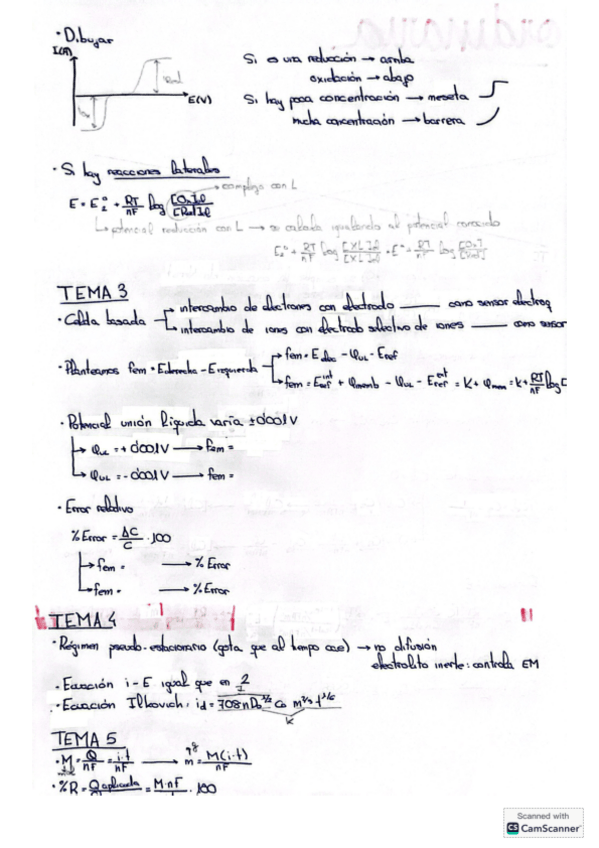 · Dibujar
I(A)
E(V)
Si es una reducción → arriba
oxidación → abajo
Si hay poca concentración → meseta
mucha concentración → barrera
· Si hay reacciones laterales
complejo con L
E = E + RT/nF log
potencial reducción con L → se calcula igualando al potencial conocido
TEMA 3
· Celda basada
intercambio de electrones con electrodo ___ como sensor electroq
intercambio de iones con electrodo selectivo de iones ___ como sensor
· Planteamos fem = Ederecha - Eizquierda
fem = - φUL - Eref
fem = Eref int + φmemb - φUL - Eref ext = K + φmem = K + RT/nF log C
· Potencial unión líquida varía ± 0'001V
φUL = + 0'001V → fem =
φUL = - 0'001V → fem =
· Error relativo
% Error = ΔC/C · 100
fem = → % Error
fem = → % Error
TEMA 4
· Régimen pseudo-estacionario (gota que al tiempo cae) → no difusión
electrolito inerte: controla EM
· Ecuación i-E igual que en 2
· Ecuación Ilkovich: id = 708 n D0^1/2 C0 m^2/3 t^1/6
K
TEMA 5
· M = Q/nF = i·t/nF → m = M(i·t)/nF
· %R = Q aplicada = M·nF · 100
Scanned with
CS CamScanner